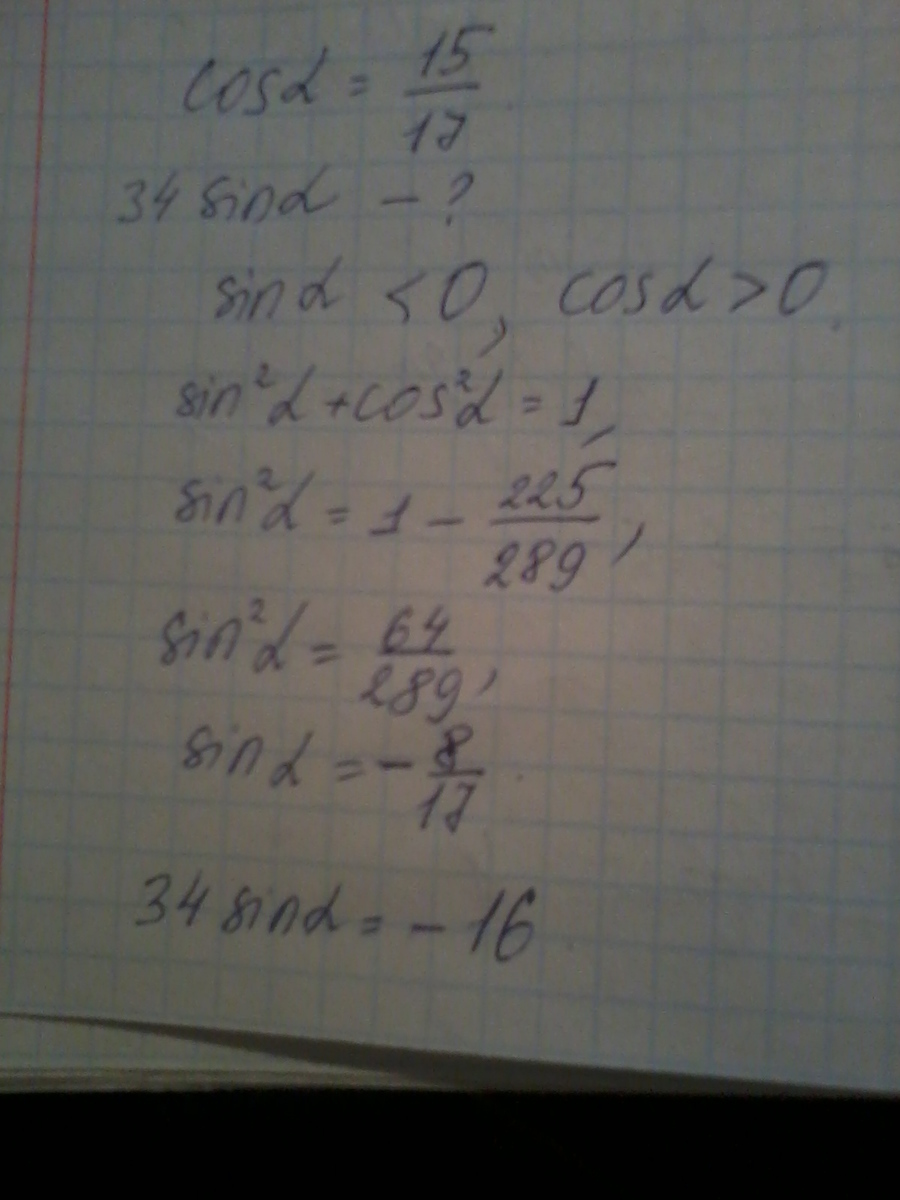 cosα = 15/17
34 sinα - ?
sinα < 0, cosα > 0.
sin²α + cos²α = 1,
sin²α = 1 - 225/289,
sin²α = 64/289,
sinα = - 8/17.
34 sinα = - 16